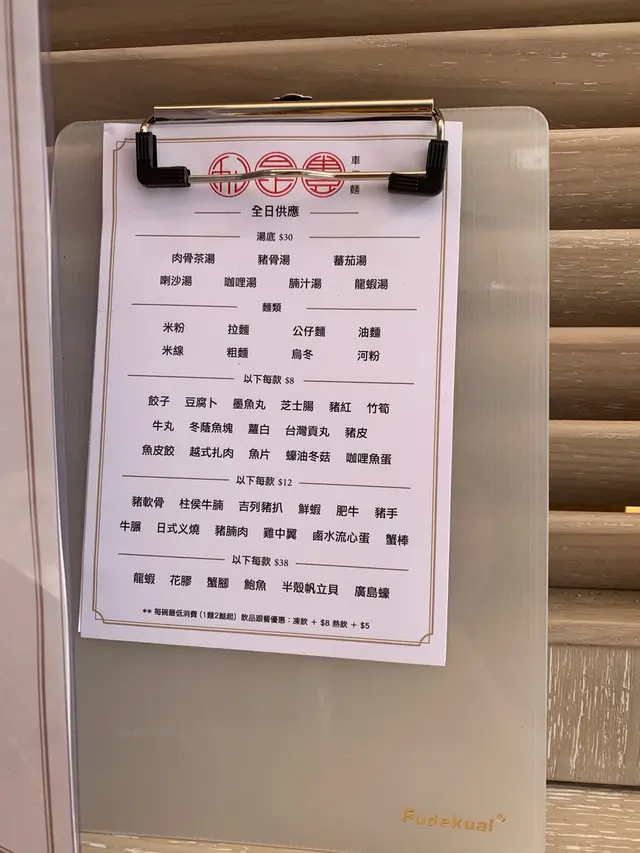 車
麵
全日供應
湯底 $30
肉骨茶湯 豬骨湯 蕃茄湯
喇沙湯 咖哩湯 腩汁湯 龍蝦湯
麵類
米粉 拉麵 公仔麵 油麵
米線 粗麵 烏冬 河粉
以下每款 $8
餃子 豆腐卜 墨魚丸 芝士腸 豬紅 竹筍
牛丸 冬蔭魚塊 蘿白 台灣貢丸 豬皮
魚皮餃 越式扎肉 魚片 蠔油冬菇 咖哩魚蛋
以下每款 $12
豬軟骨 柱侯牛腩 吉列豬扒 鮮蝦 肥牛 豬手
牛𦟌 日式叉燒 豬腩肉 雞中翼 鹵水流心蛋 蟹棒
以下每款 $38
龍蝦 花膠 蟹腳 鮑魚 半殼帆立貝 廣島蠔
** 每碗最低消費 (1麵2餸起) 飲品跟餐優惠：凍飲 + $8 熱飲 + $5
Fudekual